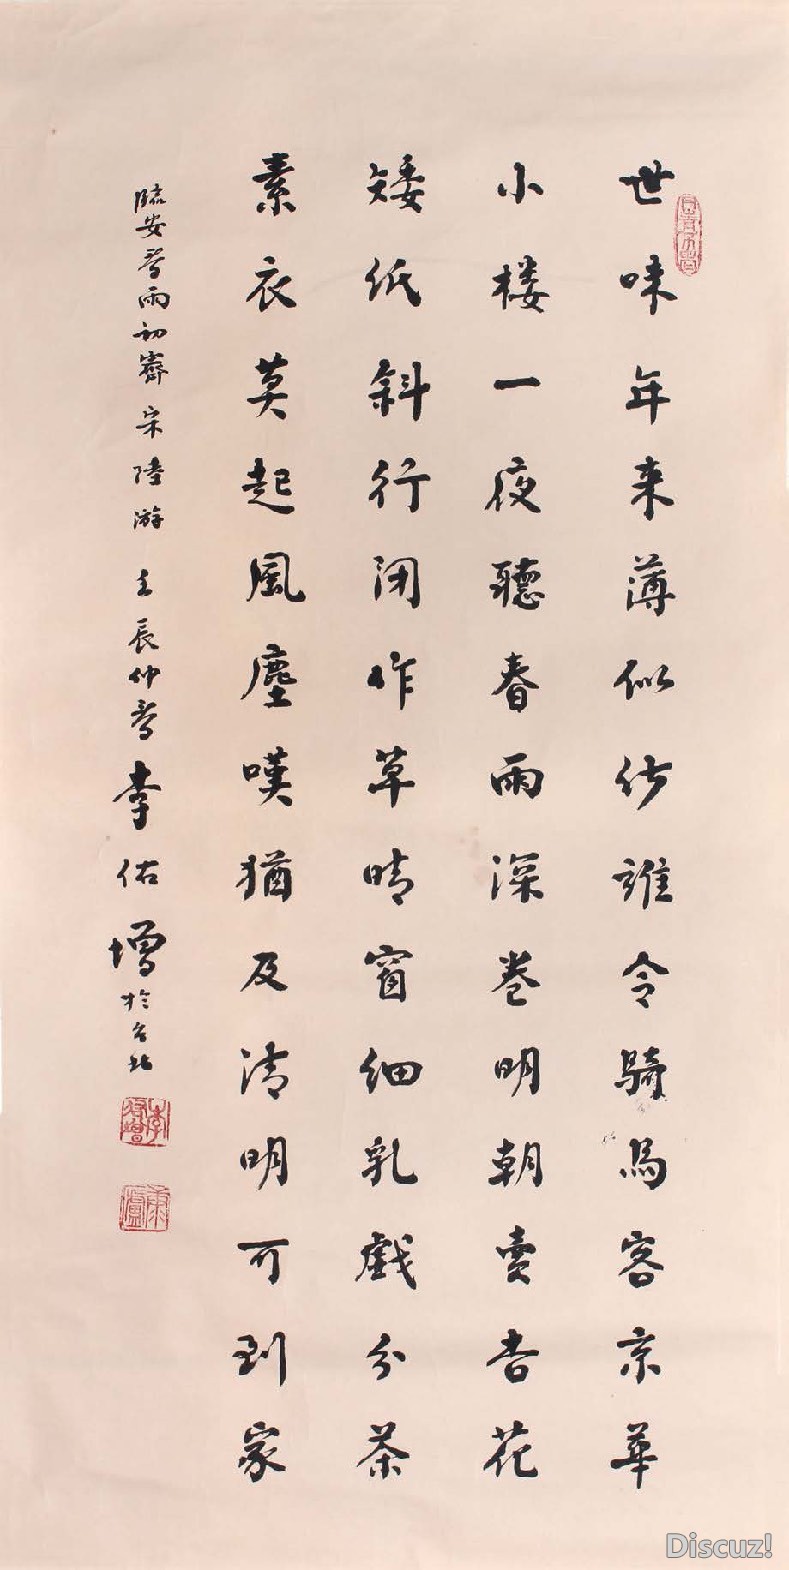 世味年来薄似紗誰令騎馬客京華
小楼一夜聽春雨深巷明朝賣杏花
矮紙斜行闲作草晴窗細乳戲分茶
素衣莫起風塵嘆猶及清明可到家
臨安春雨初霽 宋 陸游 壬辰仲春 李佑增於台北
Discuz!